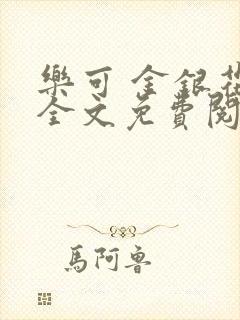 樂可 金銀花
全文免費閱
馬阿魯